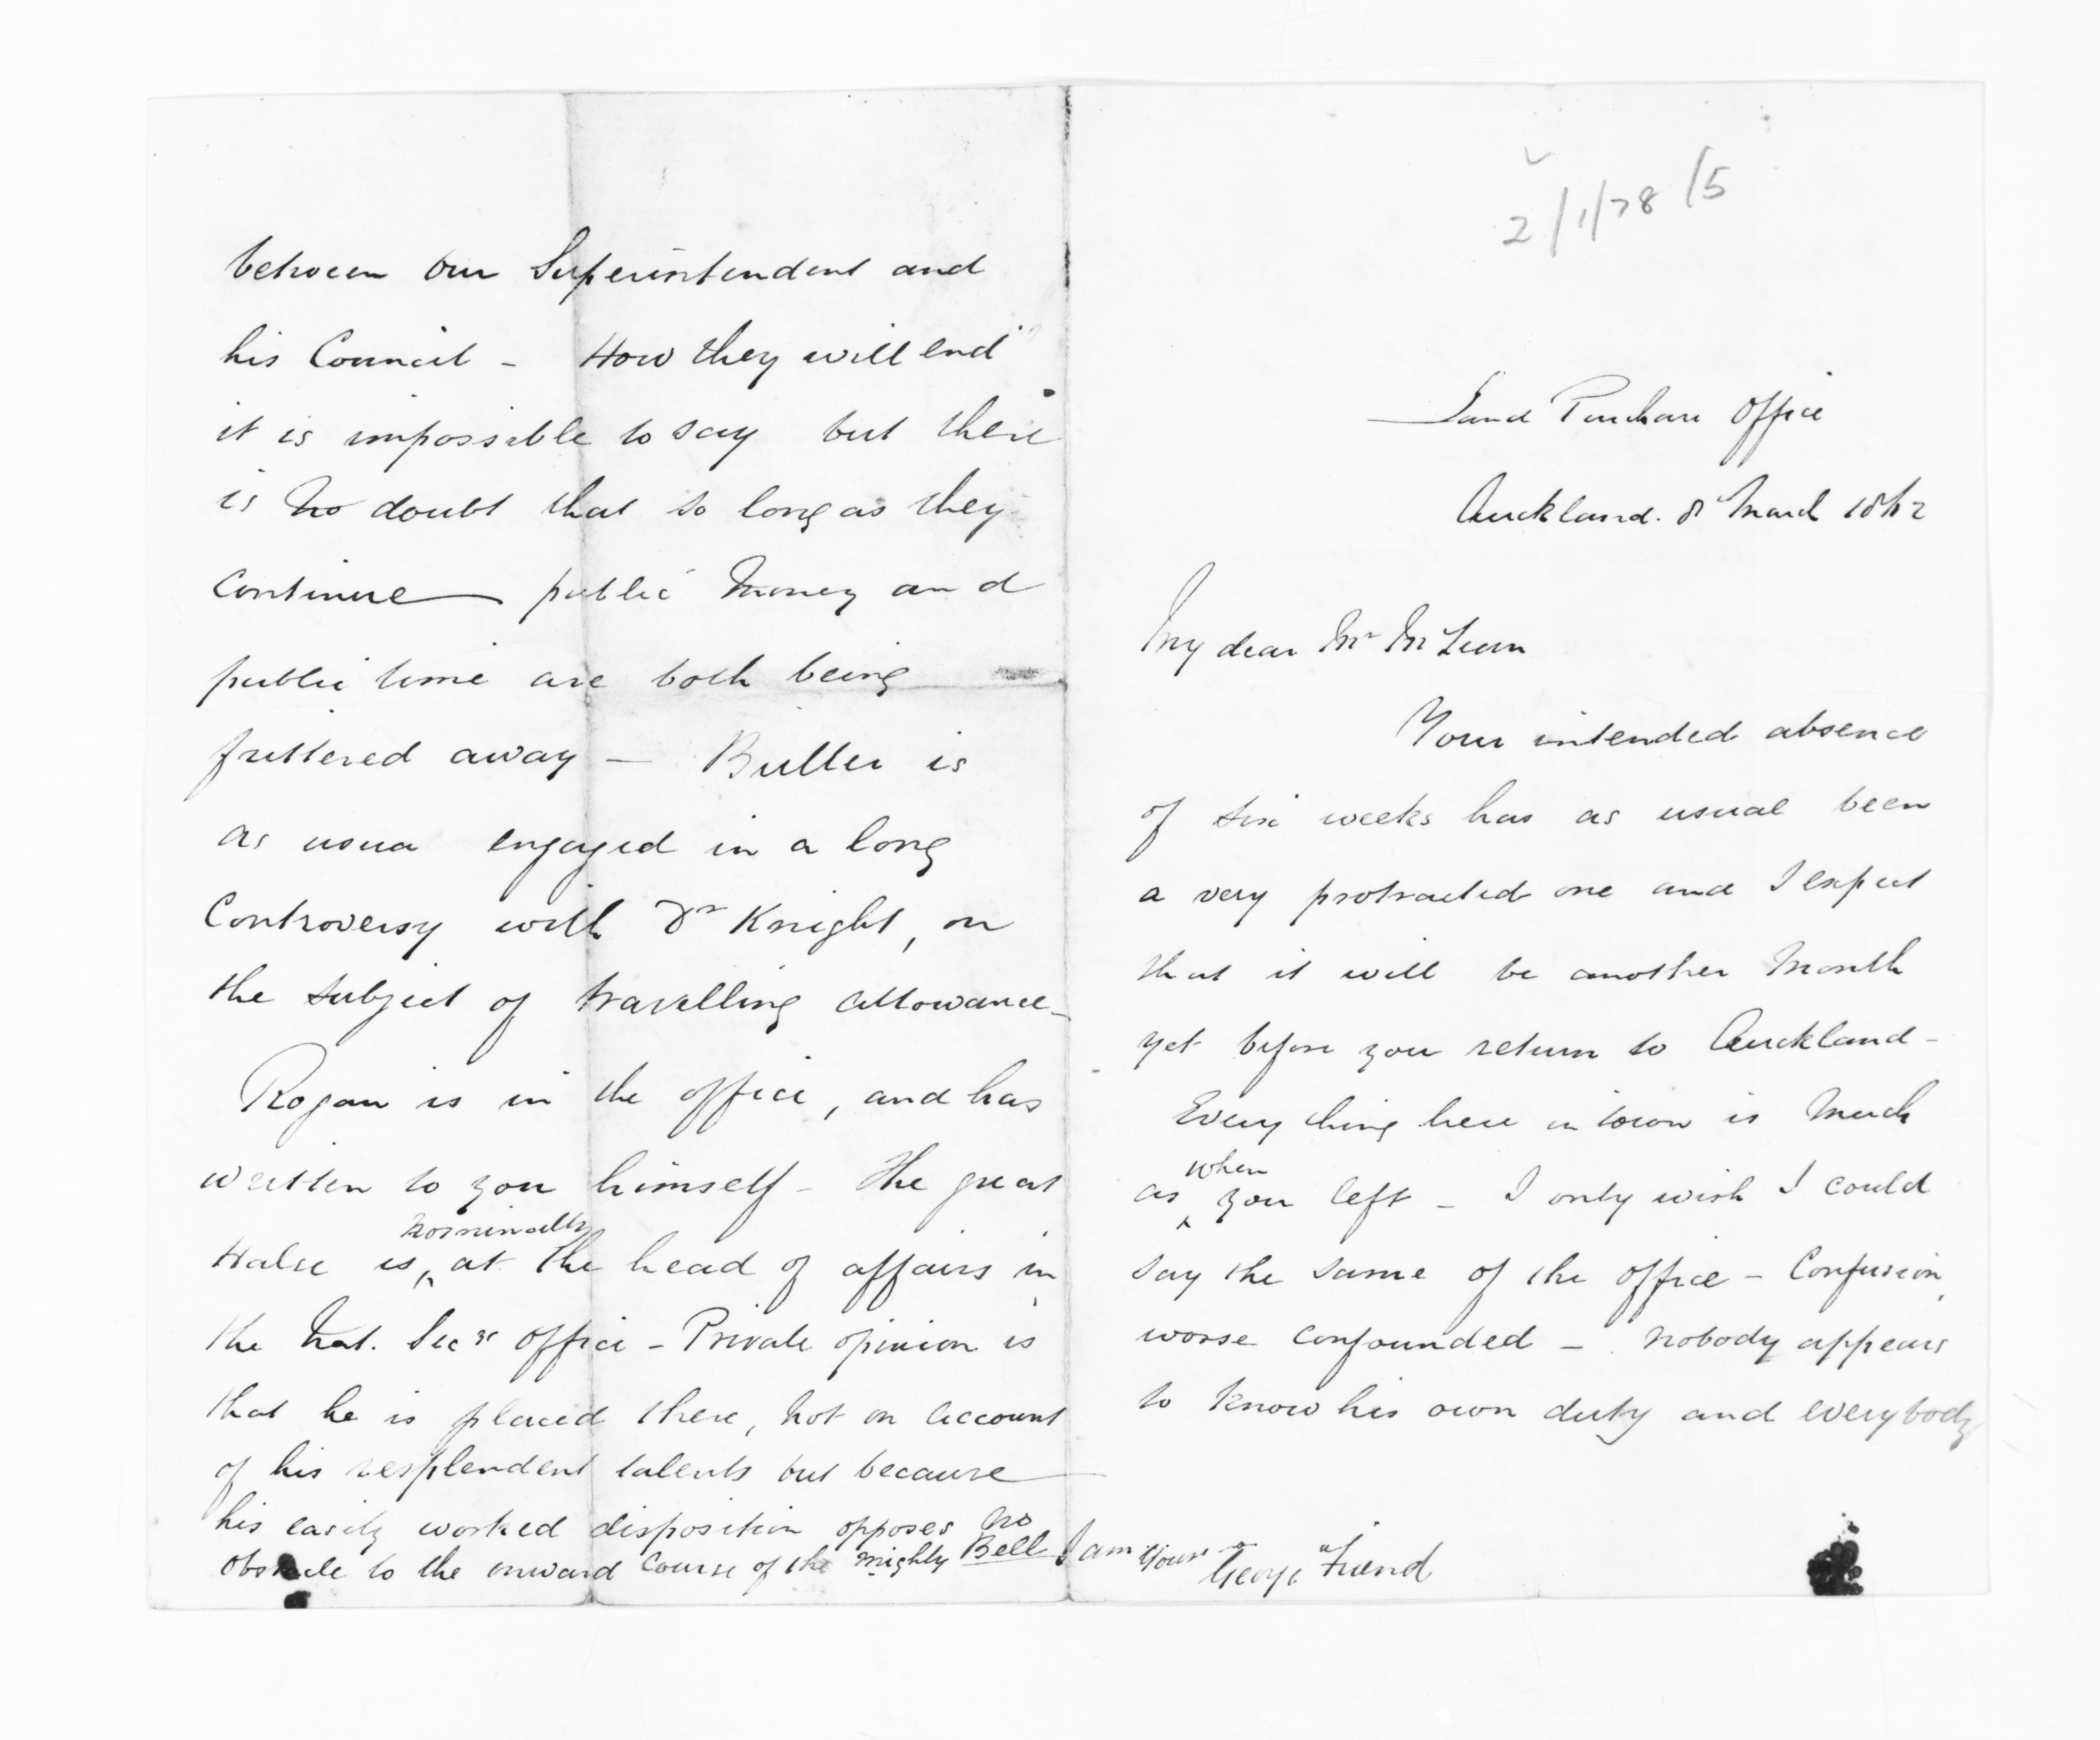 2/1/78/5
Land Purchase Office
Auckland. 8 March 1862
My dear Mr McLean
Your intended absence
of six weeks has as usual been
a very protracted one and I expect
that it will be another Month
yet before you return to Auckland -
Every thing here in town is Much
as when you left - I only wish I could
say the same of the office - Confusion
worse confounded - nobody appears
to know his own duty and everybody
between our Superintendent and
his Council - How they will end
it is impossible to say but there
is No doubt that so long as they
continue public Money and
public time are both being
frittered away - Buller is
as usua engaged in a long
Controversy with Dr Knight, on
the subject of travelling allowance -
Rogan is in the office, and has
written to you himself - The great
Halse is nominally at the head of affairs in
the Nat. Secys office - Private opinion is
that he is placed there, Not on account
of his resplendent talents but because
his easily worked disposition opposes No
obstacle to the onward course of the mighty Bell I am Yours
George Friend